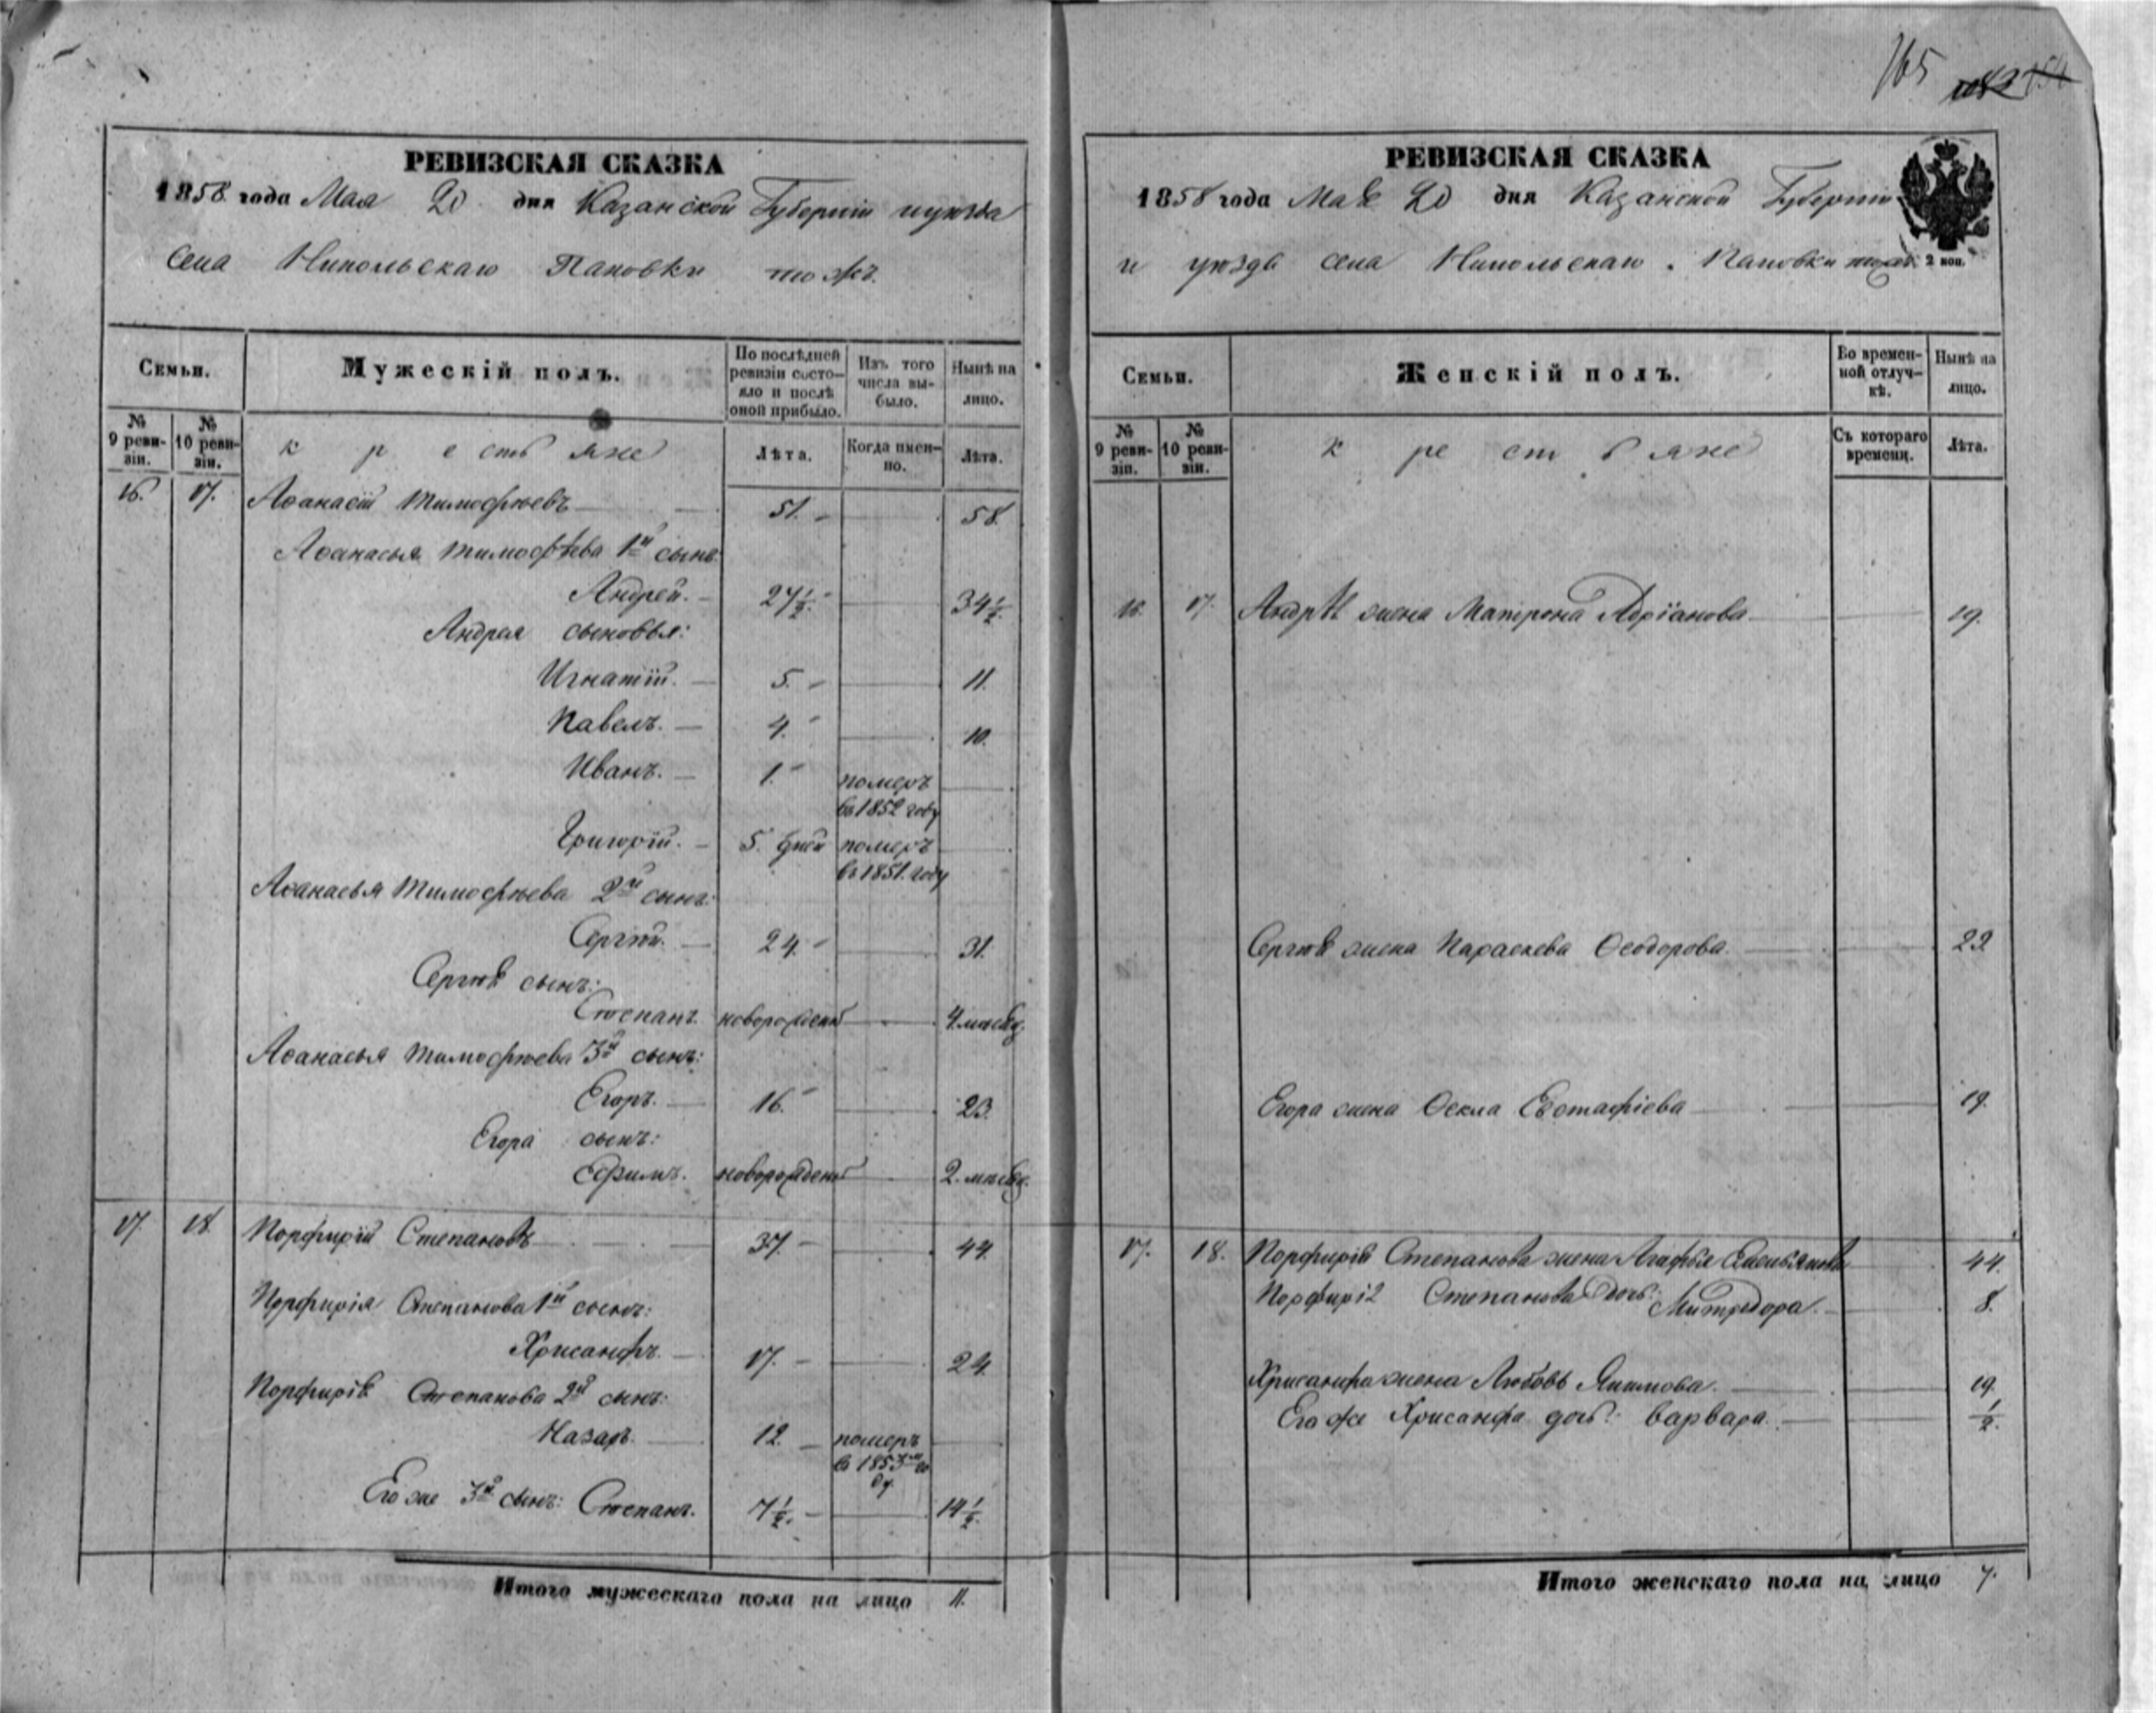 165
РЕВИЗСКАЯ СКАЗКА
1858 года Мая 20 дня Казанской Губерніи и уѣзда
села Никольскаго Пановки тожъ.
Семьи.
Мужескій полъ.
По послѣдней ревизіи состояло и послѣ оной прибыло.
Изъ того числа выбыло.
Нынѣ на лицо.
№ 9 ревизіи.
№ 10 ревизіи.
крестьяне
Лѣта.
Когда именно.
Лѣта.
16. 17. Аѳанасій Тимофѣевъ 51. 58.
Аѳанасья Тимофѣева 1й сынъ:
Андрей. 27½. 34½.
Андрея сыновья:
Игнатій. 5. 11.
Павелъ. 4. 10.
Иванъ. 1. померъ
въ 1852 году
Григорій. 5. дней померъ
въ 1851. году
Аѳанасья Тимофѣева 2й сынъ:
Сергѣй. 24. 31.
Сергѣя сынъ:
Степанъ новорожденъ 4. мѣсяц.
Аѳанасья Тимофѣева 3й сынъ:
Егоръ. 16. 23.
Егора сынъ:
Ефимъ. новорожденъ 2. мѣсяц.
17. 18. Порфирій Степановъ 37. 44.
Порфирія Степанова 1й сынъ:
Хрисанфъ. 17. 24.
Порфирія Степанова 2й сынъ:
Назаръ. 12. померъ
въ 1853м го
ду
Его же 3й сынъ: Степанъ. 7½. 14½.
Итого мужескаго пола на лицо 11.
РЕВИЗСКАЯ СКАЗКА
1858 года Мая 20 дня Казанской Губерніи
и уѣзда села Никольскаго Пановки тожъ. 2 коп.
Семьи.
Женскій полъ.
Во временной отлучкѣ.
Нынѣ на лицо.
№ 9 ревизіи.
№ 10 ревизіи.
крестьяне
Съ котораго времени.
Лѣта.
16. 17. Андрея жена Матрона Адріанова 19.
Сергѣя жена Параскева Ѳеодорова 22
Егора жена Ѳекла Евстафіева 19.
17. 18. Порфирія Степанова жена Агафья Емельянова 44.
Порфирія Степанова дочь: Митродора. 8.
Хрисанфа жена Любовь Якимова. 19.
Его же Хрисанфа дочь: Варвара. ½.
Итого женскаго пола на лицо 7.